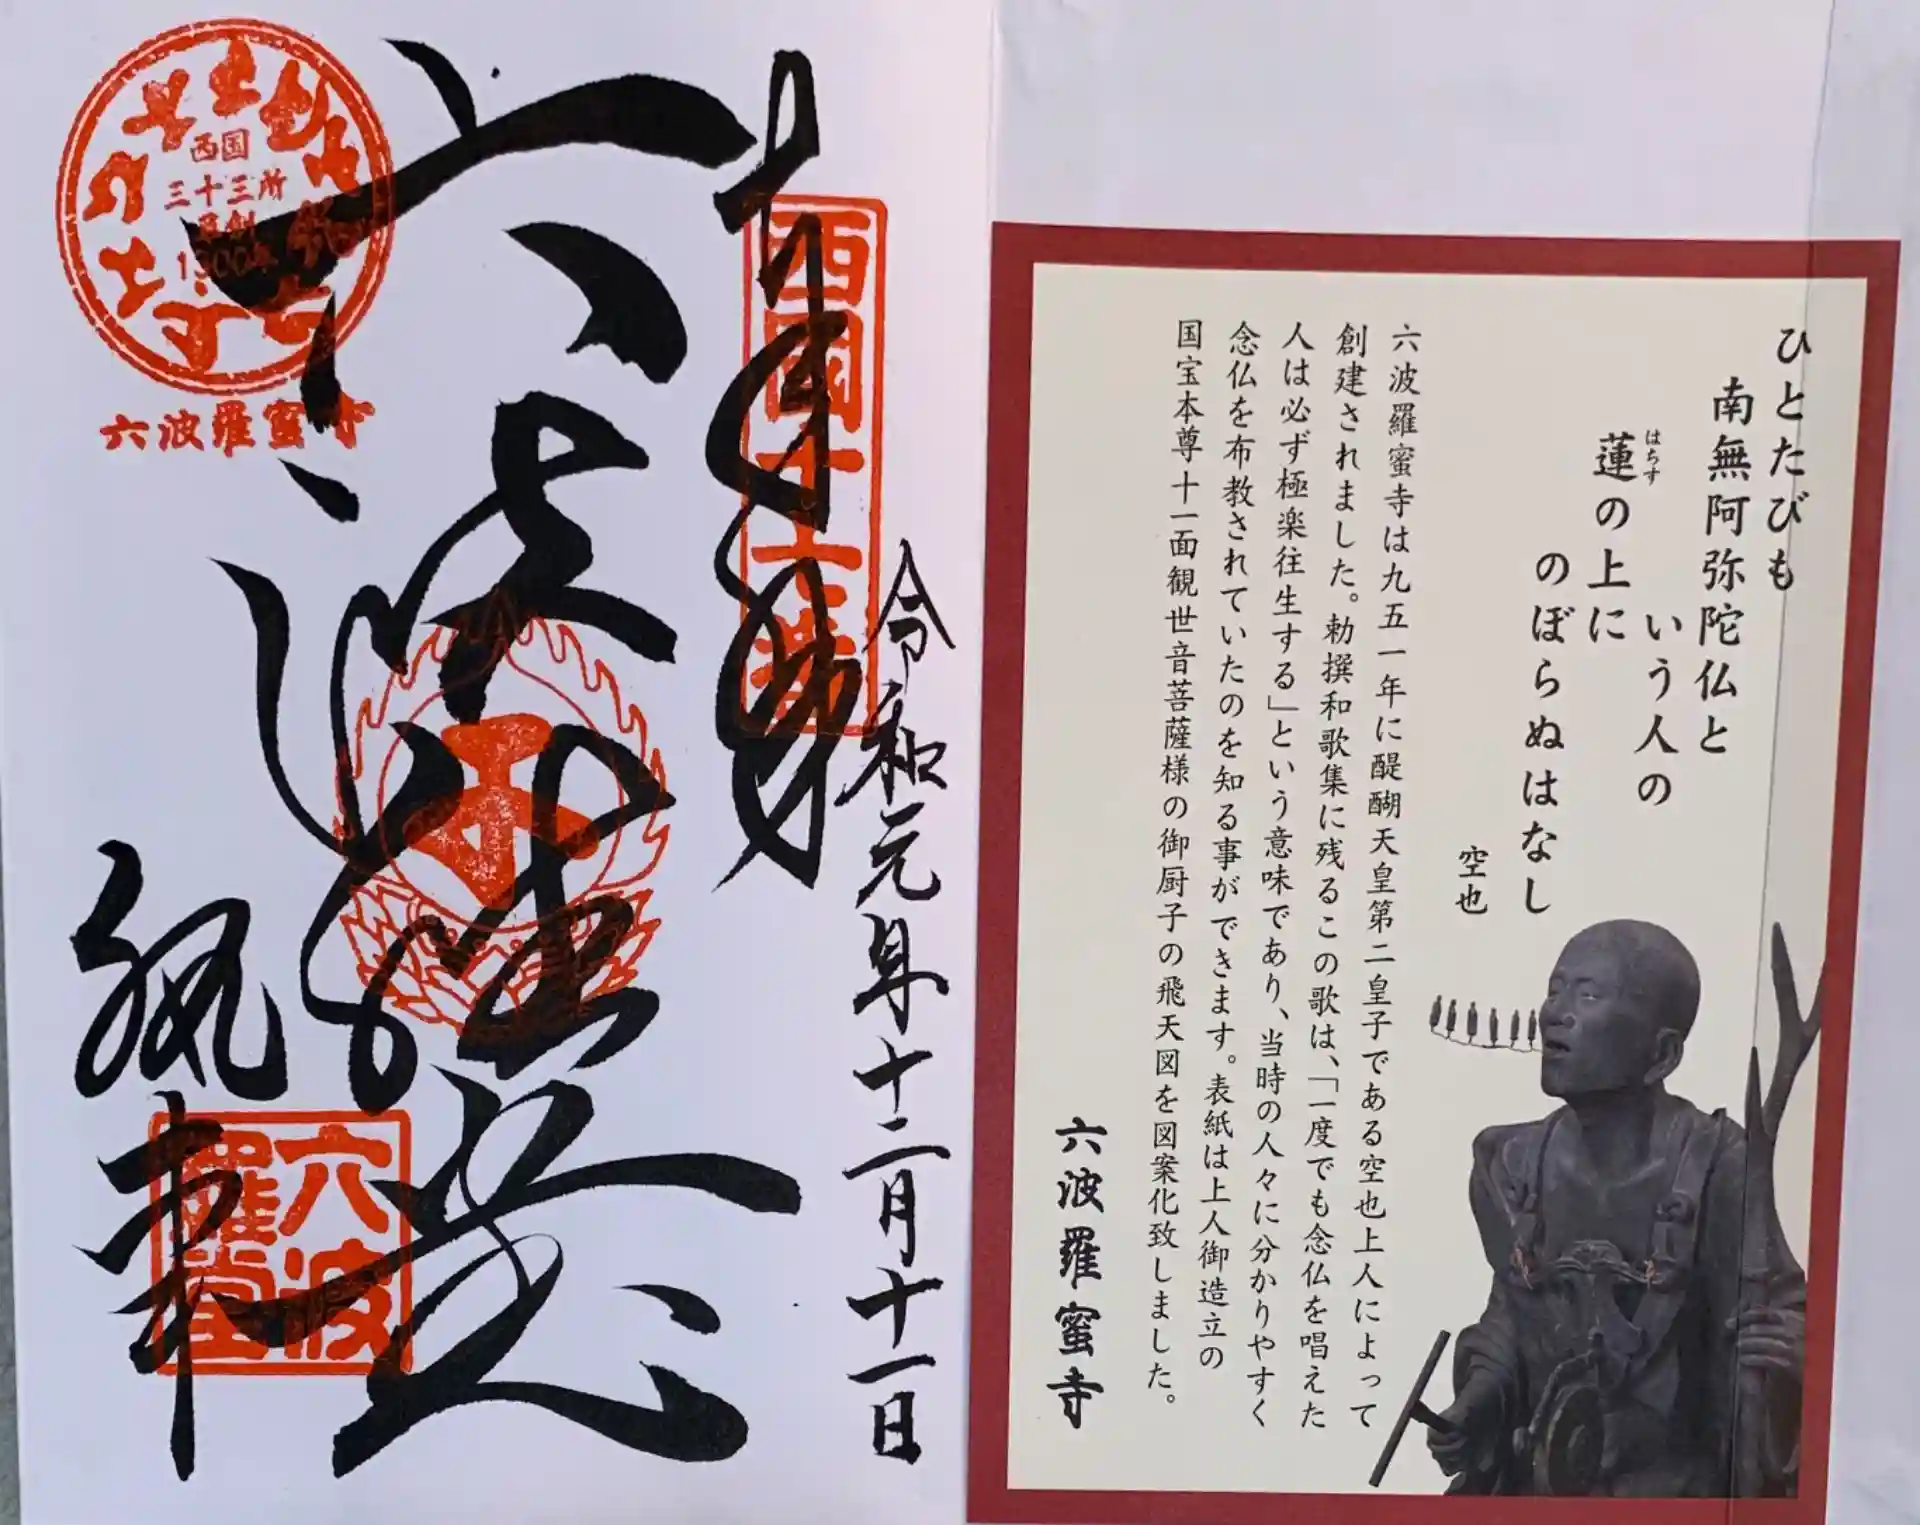 ひとたびも
南無阿弥陀仏と
いう人の
蓮の上に
はちす
のぼらぬはなし
空也
六波羅蜜寺は九五一年に醍醐天皇第二皇子である空也上人によって
創建されました。勅撰和歌集に残るこの歌は、「一度でも念仏を唱えた
人は必ず極楽往生する」という意味であり、当時の人々に分かりやすく
念仏を布教されていたのを知る事ができます。表紙は上人御造立の
国宝本尊十一面観世音菩薩様の御厨子の飛天図を図案化致しました。
六波羅蜜寺
令和元年十二月十一日
奉拝
西国十七番
六波羅堂
西国
三十三所
草創
1300年
六波羅蜜寺
六波羅堂